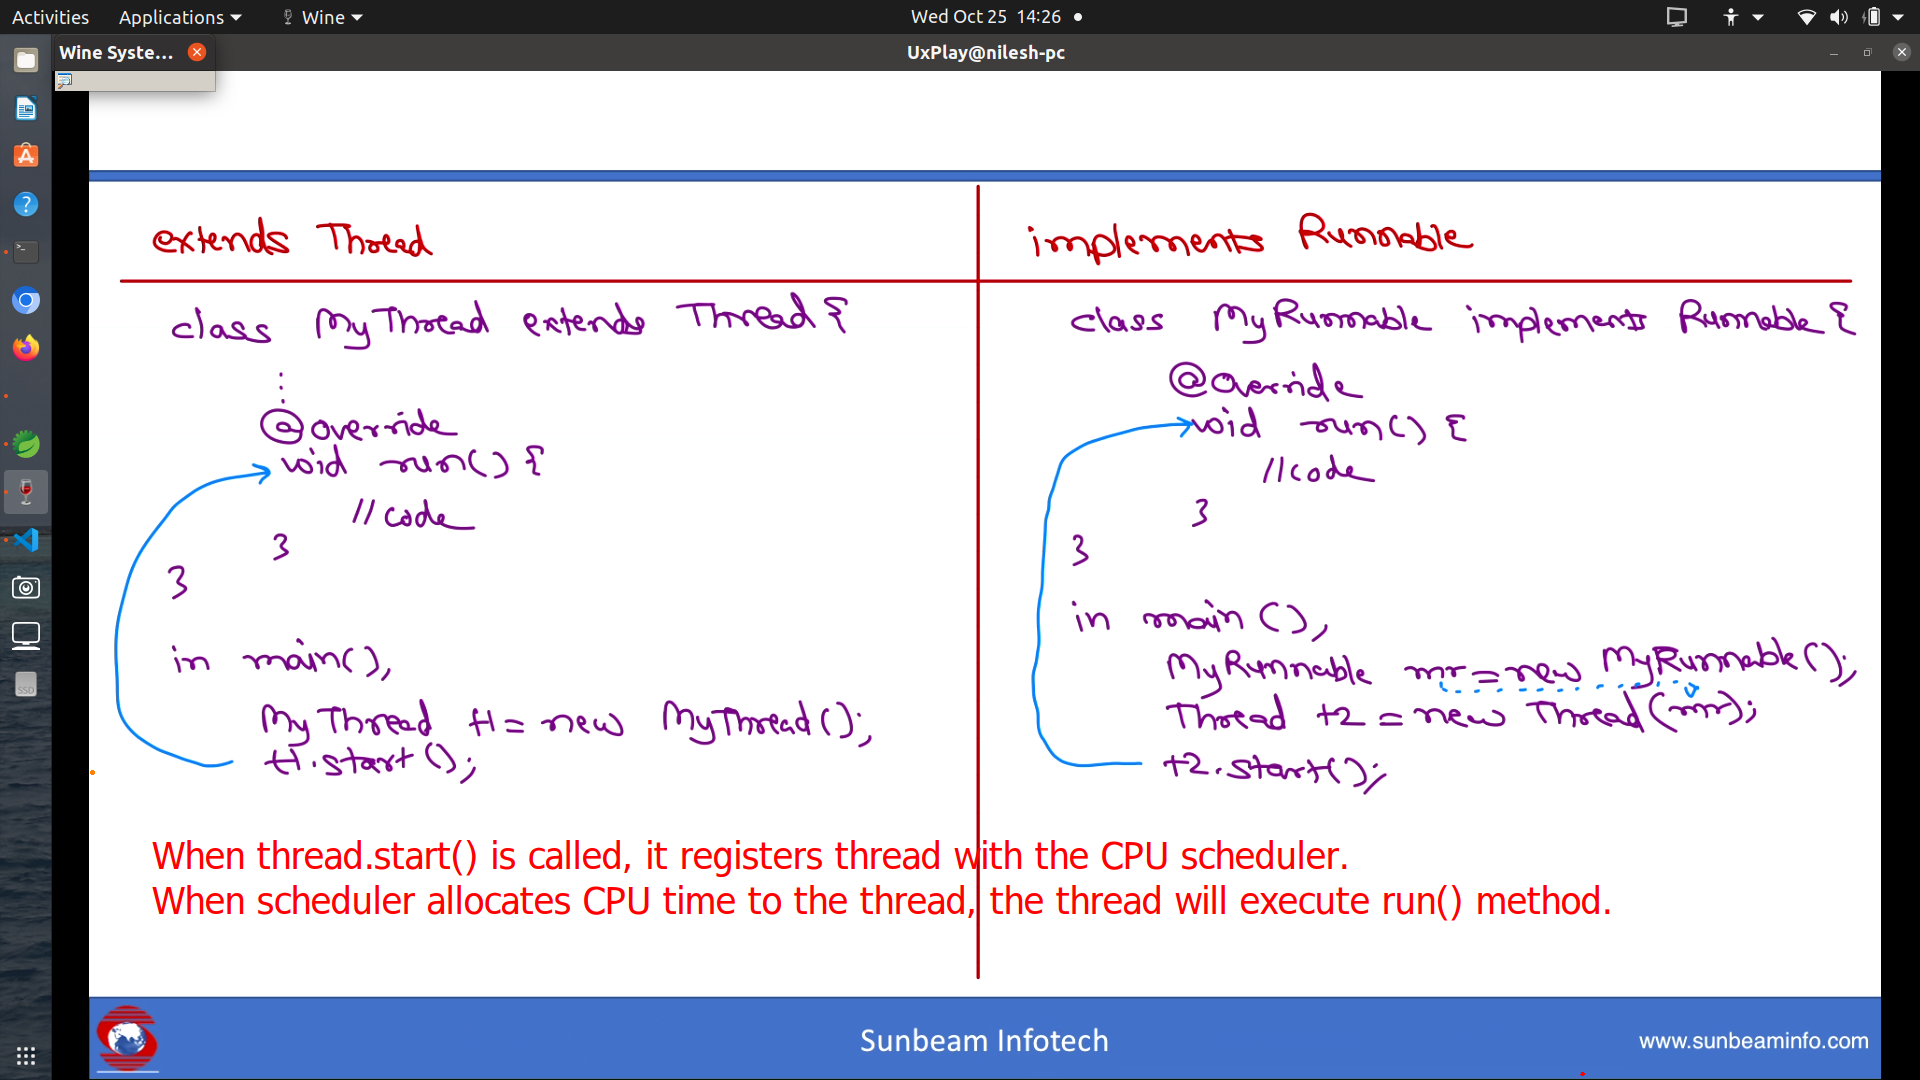 Activities Applications Wine Wed Oct 25 14:26
Wine Syste... UxPlay@nilesh-pc
extends Thread
class MyThread extends Thread {
⋮
@override
void run() {
// code
}
}
in main(),
MyThread t1 = new MyThread();
t1.start();
implements Runnable
class MyRunnable implements Runnable {
@override
void run() {
//code
}
}
in main(),
MyRunnable mr = new MyRunnable();
Thread t2 = new Thread(mr);
t2.start();
When thread.start() is called, it registers thread with the CPU scheduler.
When scheduler allocates CPU time to the thread, the thread will execute run() method.
Sunbeam Infotech
www.sunbeaminfo.com
SSD